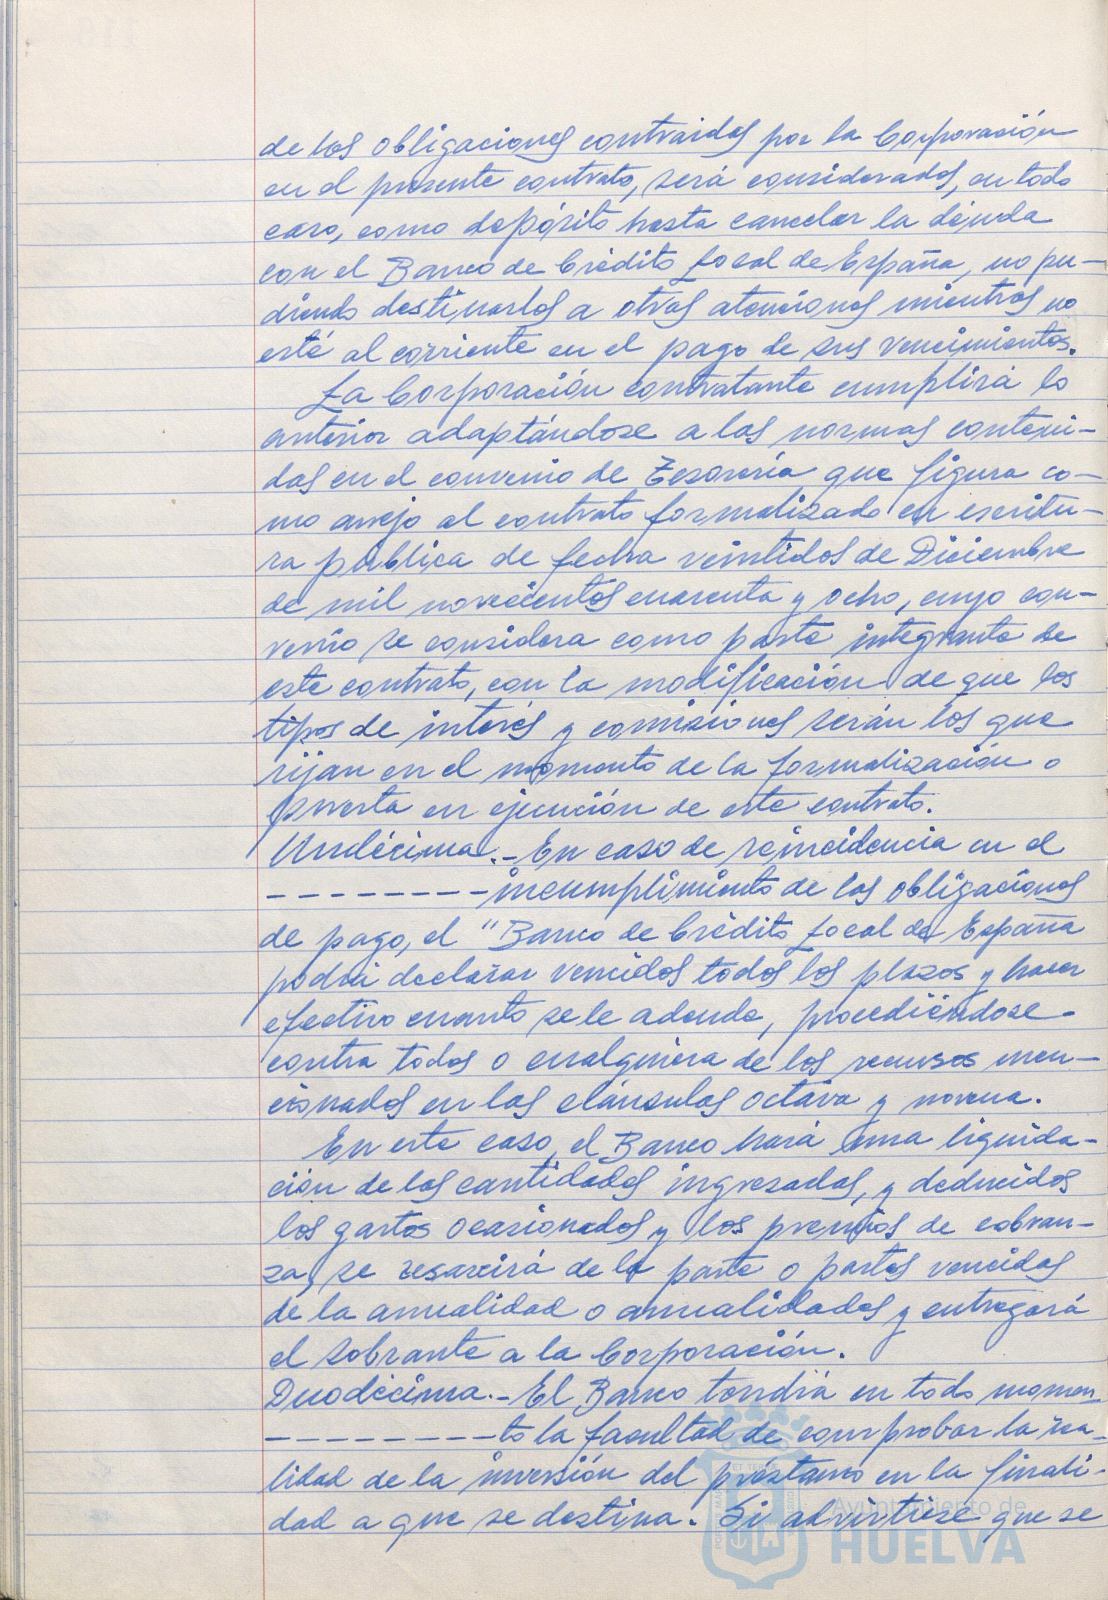 de las obligaciones contraidas por la Corporación
en el presente contrato, será considerados, en todo
caso, como depósito hasta cancelar la deuda
con el Banco de Crédito Local de España, no pu-
diendo destinarlos a otras atenciones mientras no
esté al corriente en el pago de sus vencimientos.
La Corporación contratante cumplirá lo
anterior adaptándose a las normas conteni-
das en el convenio de Tesorería que figura co-
mo anejo al contrato formalizado en escritu-
ra pública de fecha veintidos de Diciembre
de mil novecientos cuarenta y ocho, cuyo con-
venio se considera como parte integrante de
este contrato, con la modificación de que los
tipos de interés y comisiones serán los que
rijan en el momento de la formalización o
puesta en ejecución de este contrato.
Undécima.- En caso de reincidencia en el
-------- incumplimiento de las obligaciones
de pago, el "Banco de Crédito Local de España
podrá declarar vencidos todos los plazos y hacer
efectivo cuanto se le adeude, procediéndose-
contra todos o cualquiera de los recursos men-
cionados en las cláusulas octava y novena.
En este caso, el Banco hará una liquida-
ción de las cantidades ingresadas, y deducidos
los gastos ocasionados y los premios de cobran-
za, se resarcirá de la parte o partes vencidas
de la anualidad o anualidades y entregará
el sobrante a la Corporación.
Duodécima.- El Banco tendrá en todo momen-
--------to la facultad de comprobar la rea-
lidad de la inversión del préstamo en la finali-
dad a que se destina. Si advirtiese que se
Ayuntamiento de
HUELVA